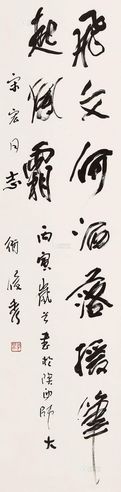 飛文何洒落援筆
起風霜
丙寅歲暮書於陝西師大
宋宏同志
衛俊秀